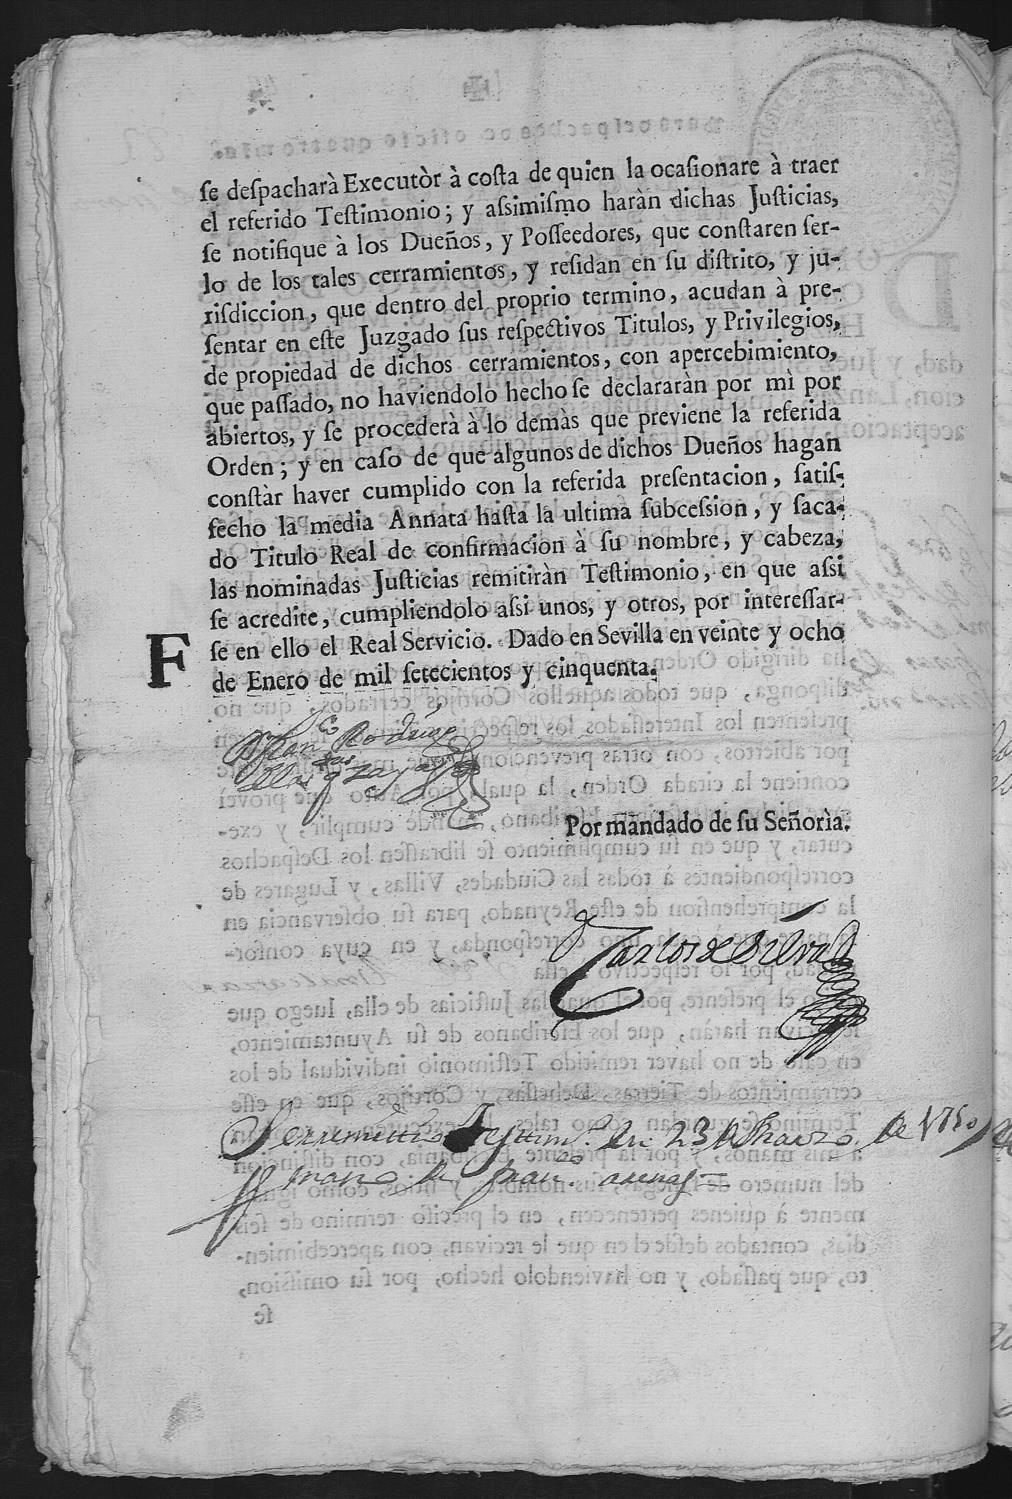 se despacharà Executòr à costa de quien la ocasionare à traer
el referido Testimonio; y assimismo haràn dichas Justicias,
se notifique à los Dueños, y Posseedores, que constaren ser-
lo de los tales cerramientos, y residan en su distrito, y ju-
risdiccion, que dentro del proprio termino, acudan à pre-
sentar en este Juzgado sus respectivos Titulos, y Privilegios,
de propiedad de dichos cerramientos, con apercebimiento,
que passado, no haviendolo hecho se declararàn por mì por
abiertos, y se procederà à lo demàs que previene la referida
Orden; y en caso de que algunos de dichos Dueños hagan
constàr haver cumplido con la referida presentacion, satis-
fecho la media Annata hasta la ultima subcession, y saca-
do Titulo Real de confirmacion à su nombre, y cabeza,
las nominadas Justicias remitiràn Testimonio, en que assi
se acredite, cumpliendolo assi unos, y otros, por interessar-
se en ello el Real Servicio. Dado en Sevilla en veinte y ocho
F
de Enero de mil setecientos y cinquenta.
Por mandado de su Señorìa.
Carlos de Silva
en 23 de Marzo de 1750
mano de Juan